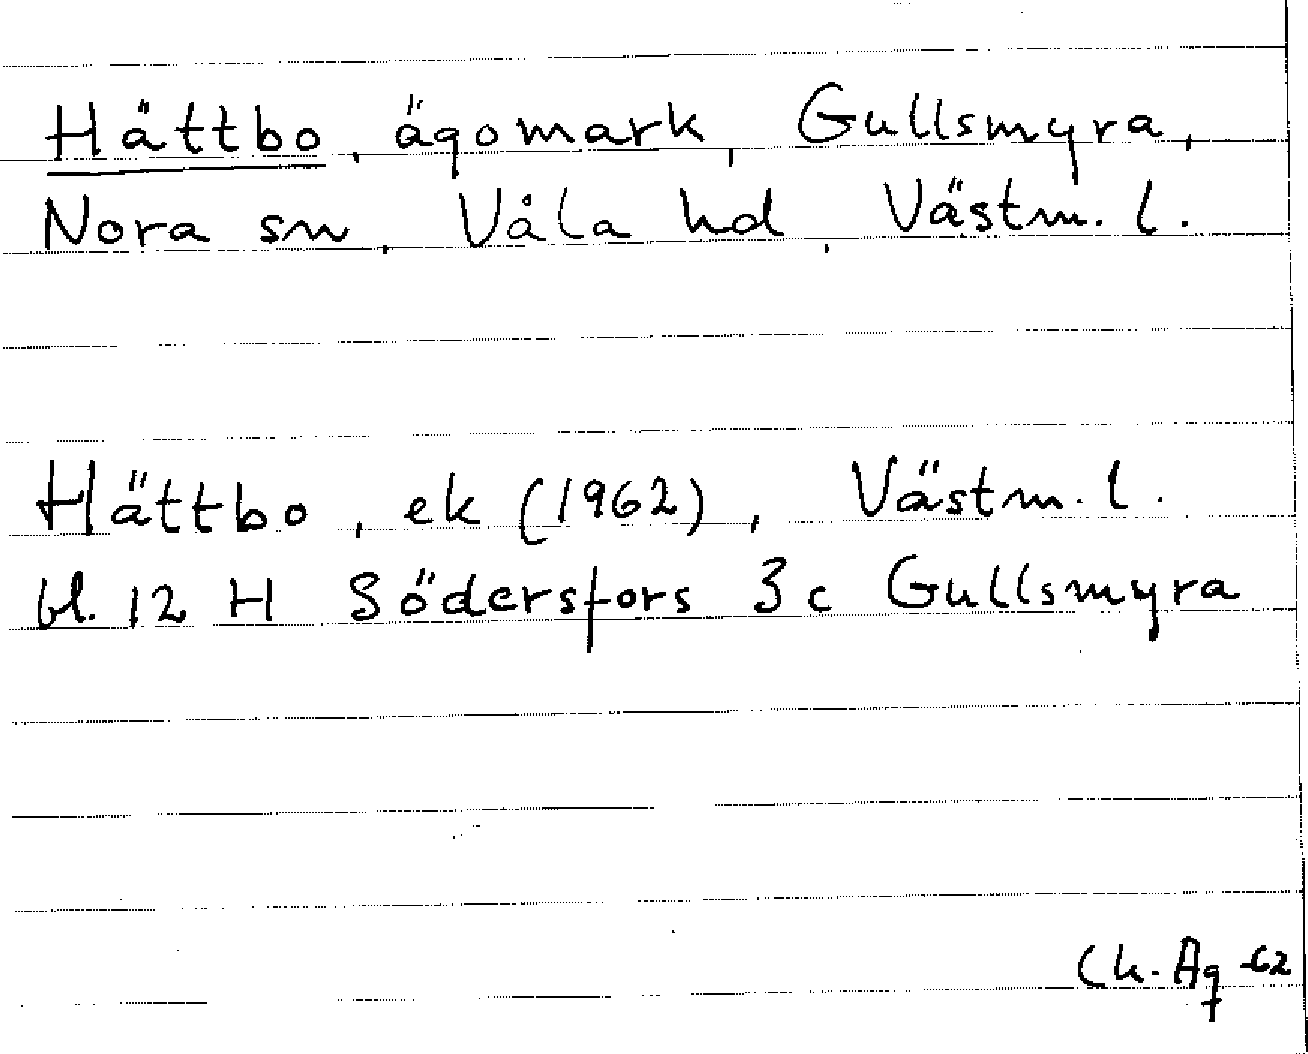 Hättbo, ägomark, Gullsmyra,
Nora sn, Våla hd, Västm. l.
Hättbo, ek (1962), Västm. l.
bl. 12 H Södersfors 3 c Gullsmyra
Ch. Aq -62